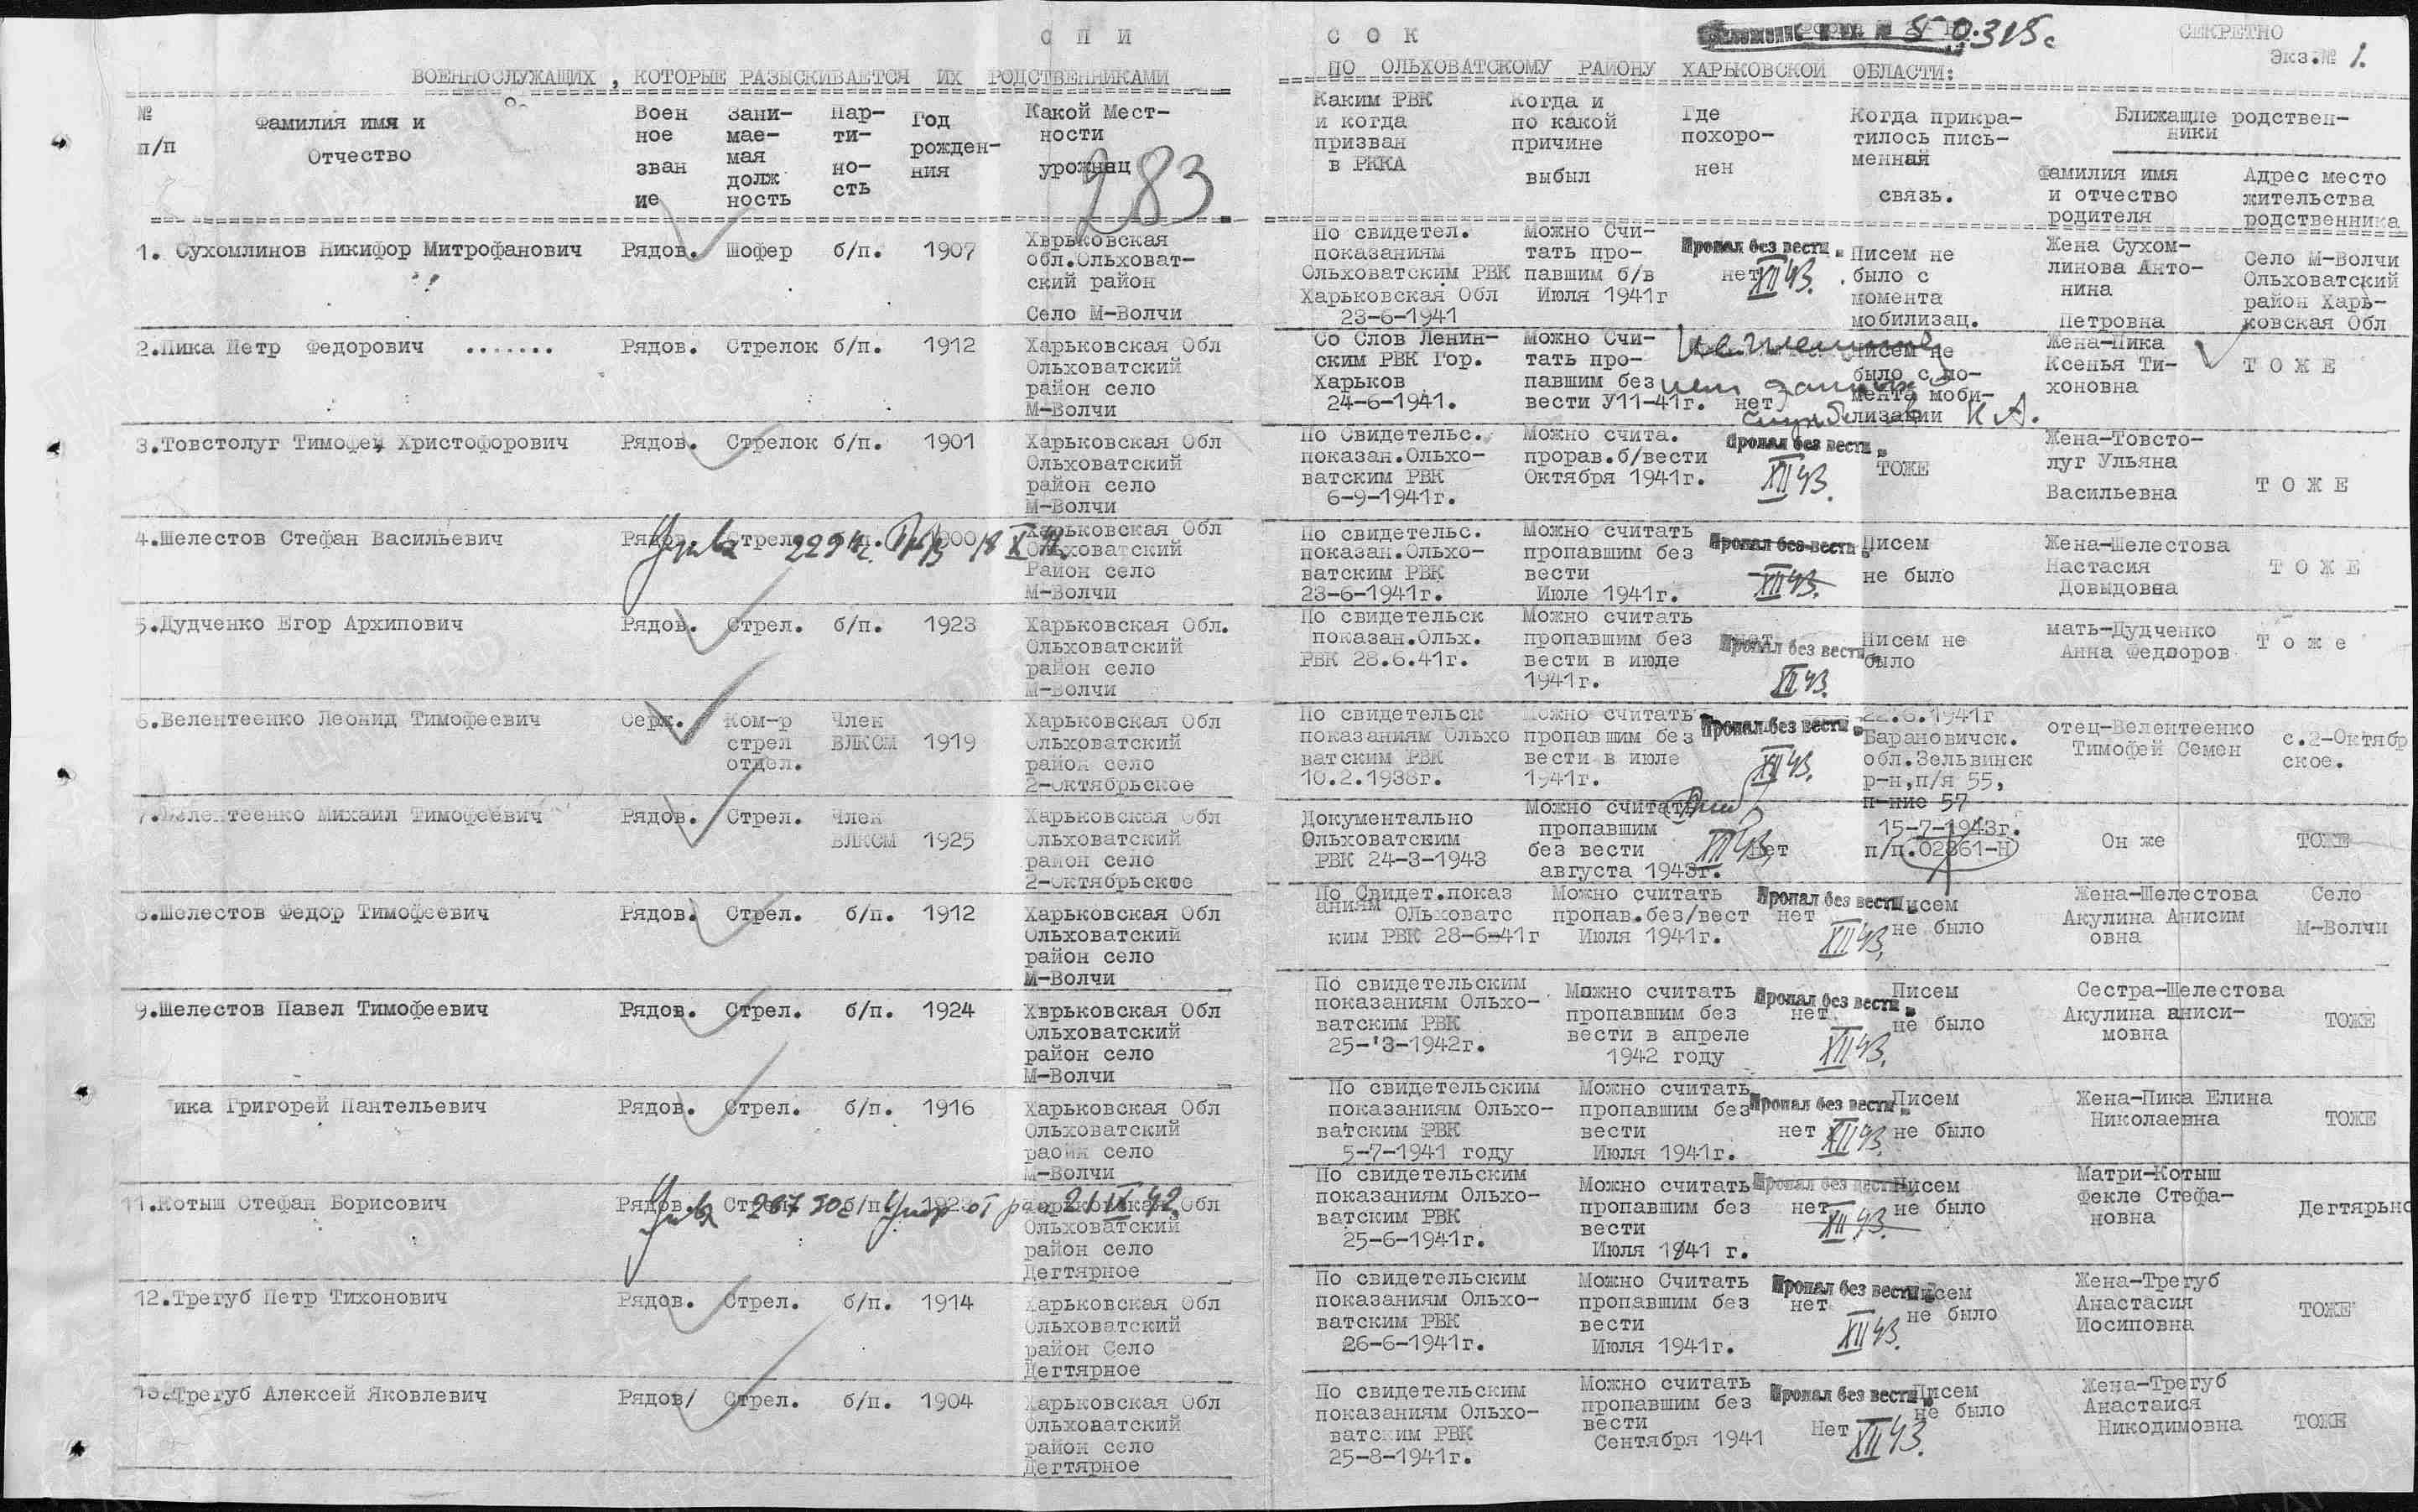 С П И С О К
СЕКРЕТНО
50.315с
Экз.№ 1.
ВОЕННОСЛУЖАЩИХ , КОТОРЫЕ РАЗЫСКИВАЕТСЯ ИХ РОДСТВЕННИКАМИ ПО ОЛЬХОВАТСКОМУ РАЙОНУ ХАРЬКОВСКОЙ ОБЛАСТИ:
№ п/п
Фамилия имя и Отчество
Воен ное зван ие
Зани- мае- мая долж ность
Пар- ти- но- сть
Год рожден- ния
Какой Мест- ности урожнец
283
Каким РВК и когда призван в РККА
Когда и по какой причине выбыл
Где похоро- нен
Когда прикра- тилось пись- менная связь.
Ближащие родствен- ники
Фамилия имя и отчество родителя
Адрес место жительства родственника
1. Сухомлинов Никифор Митрофанович Рядов. Шофер б/п. 1907
Хврьковская
обл.Ольховат-
ский район
Село М-Волчи
По свидетел.
показаниям
Ольховатским РВК
Харьковская Обл
23-6-1941
Можно Счи-
тать про-
павшим б/в
Июля 1941г
Пропал без вести
нет XII 43.
Писем не
было с
момента
мобилизац.
Жена Сухом-
линова Анто-
нина
Петровна
Село М-Волчи
Ольховатский
район Харь-
ковская Обл
2.Пика Петр Федорович ....... Рядов. Стрелок б/п. 1912
Харьковская Обл
Ольховатский
район село
М-Волчи
Со Слов Ленин-
ским РВК Гор.
Харьков
24-6-1941.
Можно Счи-
тать про-
павшим без
вести У11-41г.
нет
Писем не
было с мо-
мента моби-
лизации
Жена-Пика
Ксенья Ти-
хоновна
Т О Ж Е
3.Товстолуг Тимофей Христофорович Рядов. Стрелок б/п. 1901
Харьковская Обл
Ольховатский
район село
М-Волчи
По Свидетельс.
показан.Ольхо-
ватским РВК
6-9-1941г.
Можно счита.
прорав.б/вести
Октября 1941г.
Пропал без вести
XII 43.
ТОЖЕ
Жена-Товсто-
луг Ульяна
Васильевна
Т О Ж Е
4.Шелестов Стефан Васильевич Рядов. Стрел.
Харьковская Обл
Ольховатский
Район село
М-Волчи
По свидетельс.
показан.Ольхо-
ватским РВК
23-6-1941г.
Можно считать
пропавшим без
вести
Июле 1941г.
Пропал без вести
XII 43.
Писем
не было
Жена-Шелестова
Настасия
Довыдовна
Т О Ж Е
5.Дудченко Егор Архипович Рядов. Стрел. б/п. 1923
Харьковская Обл.
Ольховатский
район село
М-Волчи
По свидетельск
показан.Ольх.
РВК 28.6.41г.
Можно считать
пропавшим без
вести в июде
1941г.
Пропал без вести
XII 43.
Писем не
было
мать-Дудченко
Анна Федооров
Т о ж е
6.Велентеенко Леонид Тимофеевич Серж. Ком-р стрел отдел. Член ВЛКСМ 1919
Харьковская Обл
Ольховатский
район село
2-октябрьское
По свидетельск
показаниям Ольхо
ватским РВК
10.2.1938г.
Можно считать
пропавшим без
вести в июле
1941г.
Пропал без вести
XII 43.
22.6.1941г
Барановичск.
обл.Зельвинск
р-н,п/я 55,
п-ние 57
отец-Велентеенко
Тимофей Семен
с.2-Октябр
ское.
7.Велентеенко Михаил Тимофеевич Рядов. Стрел. Член ВЛКСМ 1925
Харьковская Обл
Ольховатский
район село
2-октябрьское
Документально
Ольховатским
РВК 24-3-1943
Можно считать
пропавшим
без вести
августа 1943г.
XII 43. нет
15-7-1943г.
п/п.02861-Н
Он же
ТОЖЕ
8.Шелестов Федор Тимофеевич Рядов. Стрел. б/п. 1912
Харьковская Обл
Ольховатский
район село
М-Волчи
По Свидет.показ
аниям ОЛьховатс
ким РВК 28-6-41г
Можно считать
пропав.без/вест
Июля 1941г.
Пропал без вести
нет XII 43.
Писем
не было
Жена-Шелестова
Акулина Анисим
овна
Село
М-Волчи
9.Шелестов Павел Тимофеевич Рядов. Стрел. б/п. 1924
Хврьковская Обл
Ольховатский
район село
М-Волчи
По свидетельским
показаниям Ольхо-
ватским РВК
25-3-1942г.
Можно считать
пропавшим без
вести в апреле
1942 году
Пропал без вести
нет XII 43.
Писем
не было
Сестра-Шелестова
Акулина аниси-
мовна
ТОЖЕ
ика Григорей Пантельевич Рядов. Стрел. б/п. 1916
Харьковская Обл
Ольховатский
раойн село
М-Волчи
По свидетельским
показаниям Ольхо-
ватским РВК
5-7-1941 году
Можно считать
пропавшим без
вести
Июля 1941г.
Пропал без вести
нет XII 43.
Писем
не было
Жена-Пика Елина
Николаевна
ТОЖЕ
11.Котыш Стефан Борисович Рядов. Стрел. б/п. 1923
Харьковская Обл
Ольховатский
район село
Дегтярное
По свидетельским
показаниям Ольхо-
ватским РВК
25-6-1941г.
Можно считать
пропавшим без
вести
Июля 1941 г.
Пропал без вести
нет XII 43.
Писем
не было
Матри-Котыш
Фекле Стефа-
новна
Дегтярно
12.Трегуб Петр Тихонович Рядов. Стрел. б/п. 1914
Харьковская Обл
Ольховатский
район Село
Дегтярное
По свидетельским
показаниям Ольхо-
ватским РВК
26-6-1941г.
Можно Считать
пропавшим без
вести
Июля 1941г.
Пропал без вести
нет XII 43.
Писем
не было
Жена-Трегуб
Анастасия
Иосиповна
ТОЖЕ
13.Трегуб Алексей Яковлевич Рядов/ Стрел. б/п. 1904
Харьковская Обл
Ольховатский
район село
Дегтярное
По свидетельским
показаниям Ольхо-
ватским РВК
25-8-1941г.
Можно считать
пропавшим без
вести
Сентября 1941
Пропал без вести
Нет XII 43.
Писем
не было
Жена-Трегуб
Анастаися
Никодимовна
ТОЖЕ